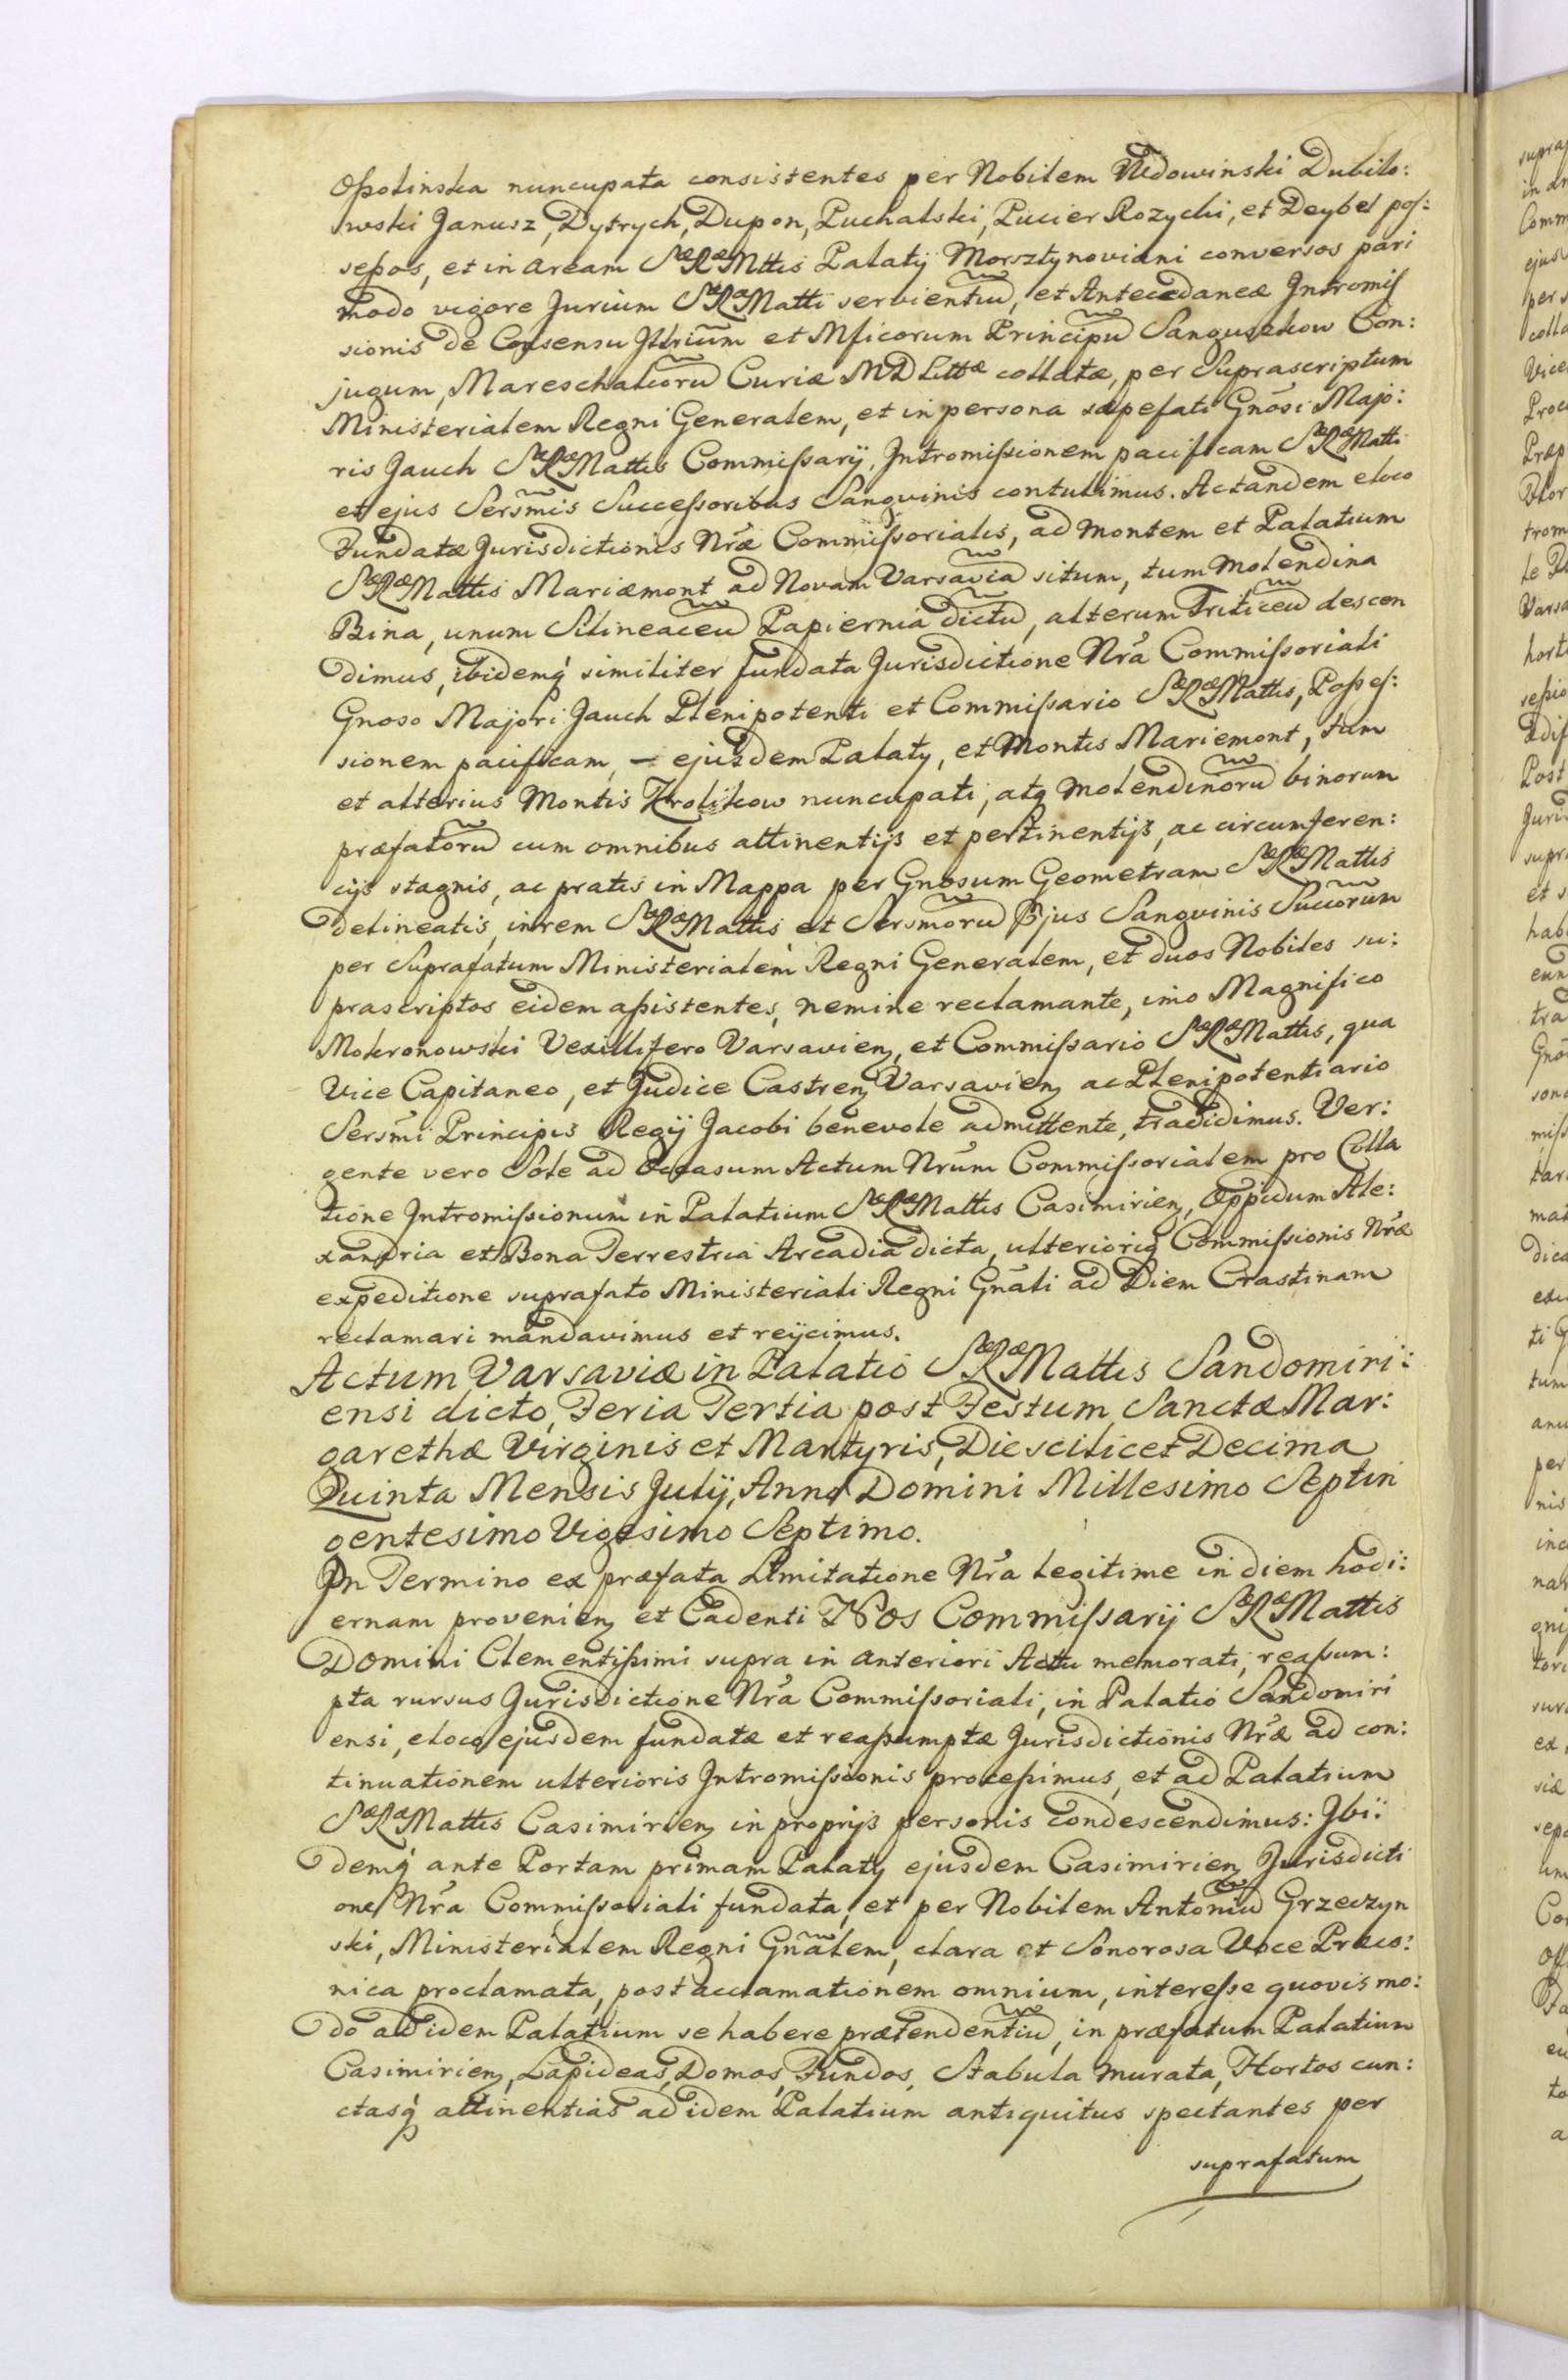 Opolinska nuncupata consistentes per Nobilem Wdowinski Dubilo:
wski Janusz, Dytrych, Dupon, Puchalski, Pucier Rozycki, et Deybel pos:
seßos, et in aream SæRæMttis Palatÿ Morsztynoviani conversos pari
modo vigore Jurium SæRæMatti servientiũ, et Antecedaneæ Intromis
sionis de Consensu Jllriũm et Mficorum Principũ Sanguszkow Con:
jugum, Mareschalcorũ Curiæ MD Littæ collatæ, per Suprascriptum
Ministerialem Regni Generalem, et in persona sæpefati Gnõsi Majo:
ris Jauch SæRæMattis Commißarÿ, Intromißionem pacificam SæRæMatti
et ejus Sersm̃is Succeßoribus Sangvinis contulimus. Ac tandem e loco
Fundatæ Jurisdictionis Nræ̃ Commißorialis, ad Montem et Palatium
SæRæMattis Mariæmont ad Novam Varsaviã situm, tum Molendina
Bina, unum Silineaceũ Papiernia dictũ, alterum Triticeũ descen
dimus, ibidemq́ similiter fundata Jurisdictione Nrã Commißoriali
Gnoso Majori Jauch Plenipotenti et Commißario SæRæMattis, Poßes:
sionem pacificam, — ejusdem Palatÿ, et Montis Mariemont, tum
et alterius Montis Krolikow nuncupati, atq Molendinorũ binorum
præfatorũ cum omnibus attinentijs et pertinentijs, ac circumferen:
cijs stagnis, ac pratis in Mappa per Gnosum Geometram SæRæMattis
delineatis, in rem SæRæMattis et Sersmorũ Ejus Sangvinis Succorũm
per Suprafatum Ministerialem Regni Generalem, et duos Nobiles su:
prascriptos eidem aßistentes, nemine reclamante, imo Magnifico
Mokronowski Vexillifero Varsavien, et Commißario SæRæMattis, qua
Vice Capitaneo, et Judice Castren Varsavien ac Plenipotentiario
Sersm̃i Principis Regÿ Jacobi benevole admittente, tradidimus. Ver:
gente vero Sole ad Occasum Actum Nrũm Commißorialem pro Colla
tione Intromißionum in Palatium SæRæMattis Casimirien, Oppidum Ale:
xandria et Bona Terrestria Arcadia dicta, ulterioriq Commißionis Nræ̃
expeditione suprafato Ministeriali Regni Gnãli ad Diem Crastinam
reclamari mandavimus et reÿcimus.
Actum Varsaviæ in Palatio SæRæMattis Sandomiri:
ensi dicto, Feria Tertia post Festum Sanctæ Mar:
garethæ Virginis et Martyris, Die scilicet Decima
Quinta Mensis Julÿ, Anno Domini Millesimo Septin
gentesimo Vigesimo Septimo.
In Termino ex præfata Limitatione Nrã legitime in diem hodi:
ernam provenien et Cadenti Nos Commißarÿ SæRæMattis
Domini Clementißimi supra in anteriori Actu memorati, reaßum:
pta rursus Jurisdictione Nrã Commißoriali, in Palatio Sandomiri
ensi, e loco ejusdem fundatæ et reaßumptæ Jurisdictionis Nræ̃ ad con:
tinuationem ulterioris Intromißionis proceßimus, et ad Palatium
SæRæMattis Casimirien in proprijs personis Condescendimus: Ibi:
demq́ ante Portam primam Palatÿ ejusdem Casimirien Jurisdicti
one Nrã Commißoriali fundata, et per Nobilem Antoniũ Grzeczyn
ski, Ministerialem Regni Gnãlem, clara et Sonorosa Voce Præco:
nica proclamata, post acclamationem omnium, intereße quovis mo:
do ad idem Palatium se habere prætendentiũ, in præfatum Palatium
Casimirien, Lapideas, Domos, Fundos, Stabula murata, Hortos cun:
ctasq́ attinentias ad idem Palatium antiquitus spectantes per
suprafatum